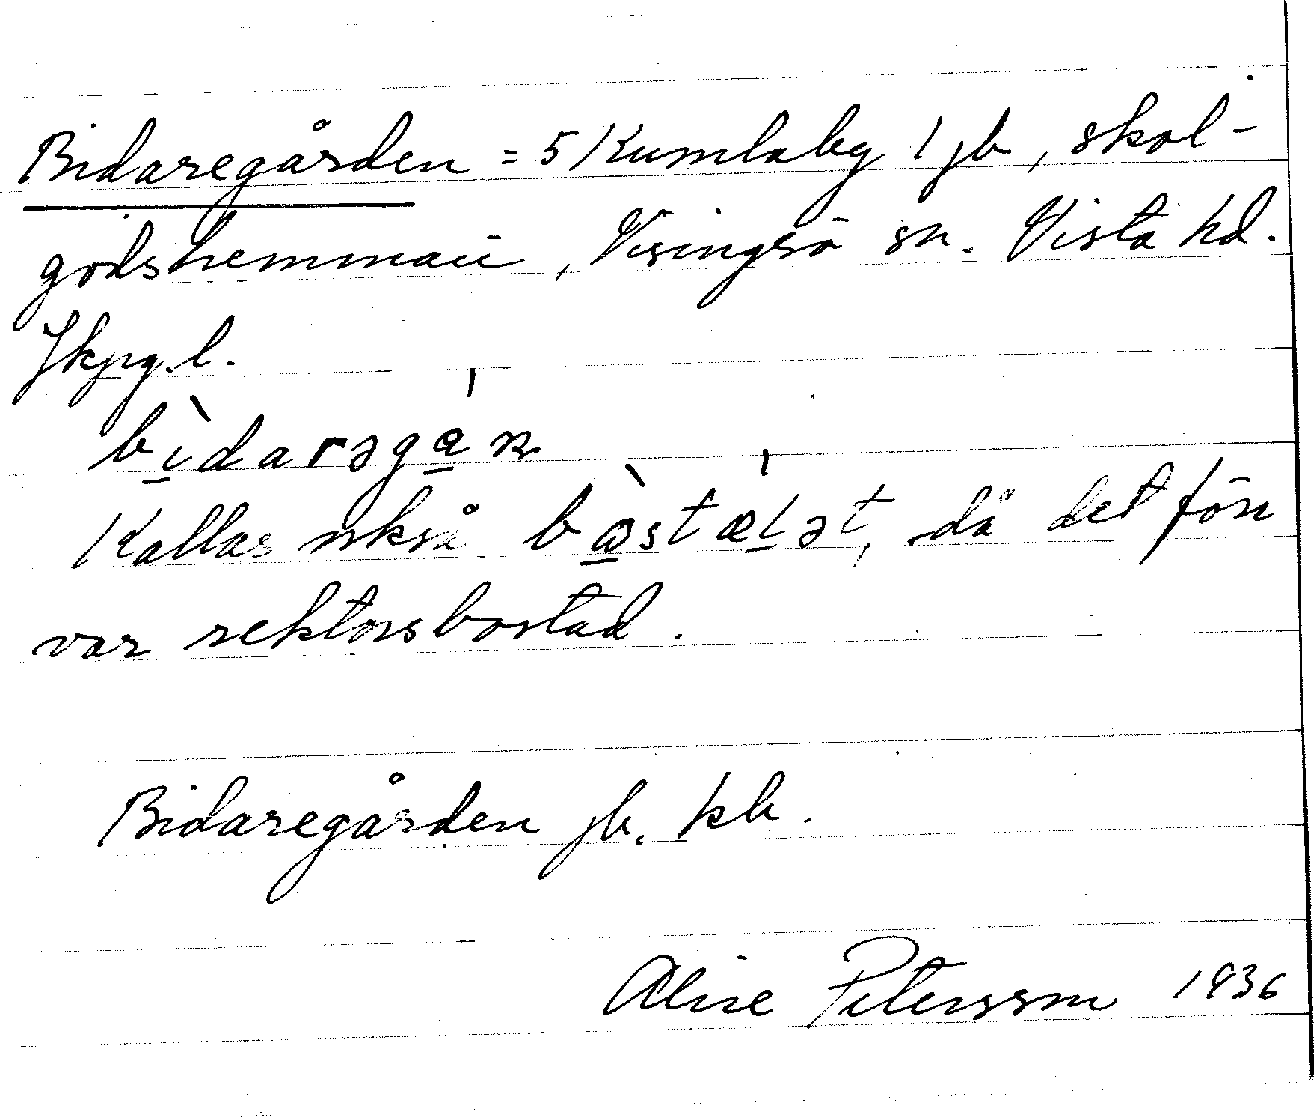 Bidaregården = 5 Kumlaby 1 jb, skol-
godshemman, Visingsö sn. Vista hd.
Jkpg.l.
bìdarəgá́n
Kallas också bòstǽlət, då det förr
var rektorsbostad.
Bidaregården jb. kb.
Aline Petersson 1936